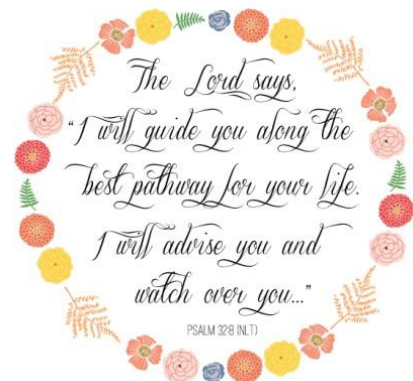 The Lord says,
"I will guide you along the
best pathway for your life.
I will advise you and
watch over you..."
PSALM 32:8 (NLT)